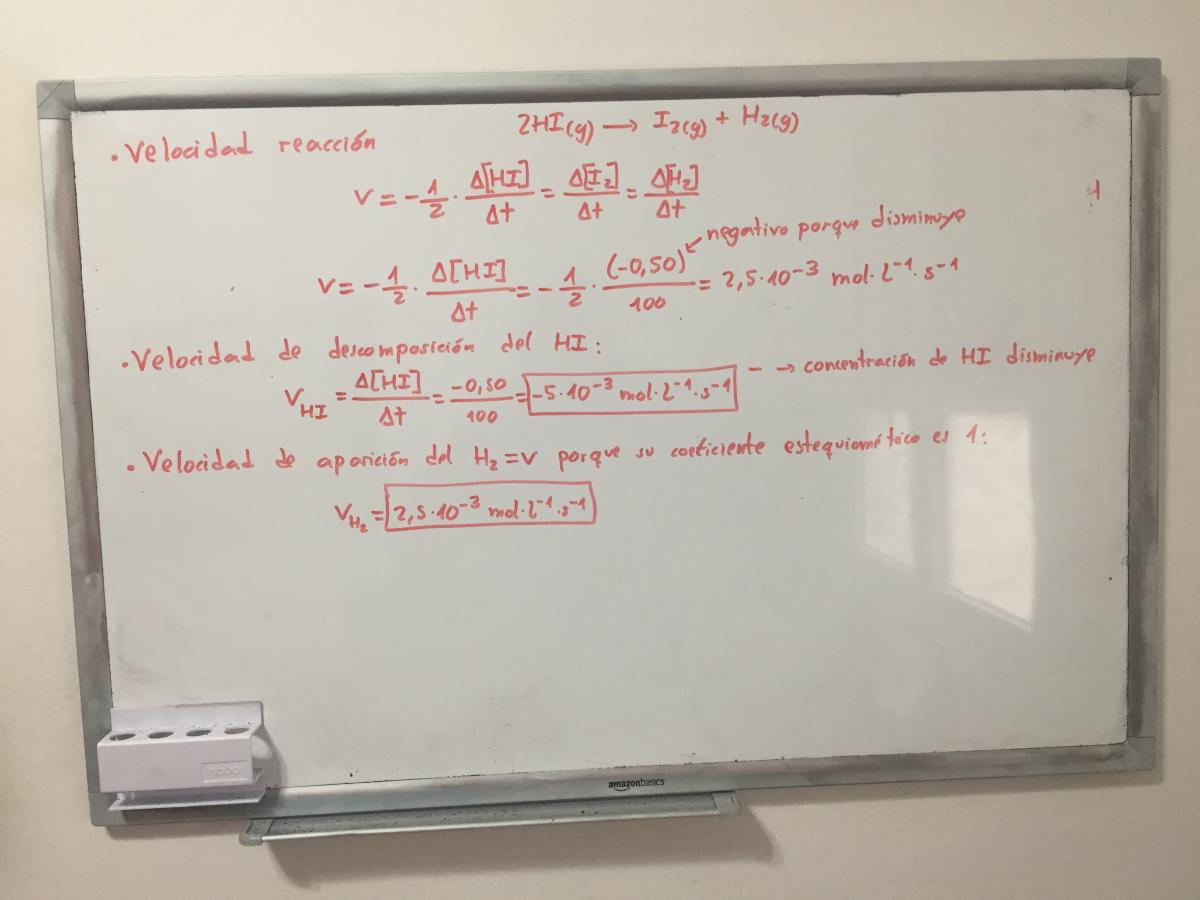 2HI(g) → I₂(g) + H₂(g)
• Velocidad reacción
V = -1/2 · Δ[HI]/Δt = Δ[I₂]/Δt = Δ[H₂]/Δt
1
negativo porque disminuye
V = -1/2 · Δ[HI]/Δt = -1/2 · (-0,50)/100 = 2,5·10⁻³ mol·l⁻¹·s⁻¹
• Velocidad de descomposición del HI:
V_HI = Δ[HI]/Δt = -0,50/100 = -5·10⁻³ mol·l⁻¹·s⁻¹ - → concentración de HI disminuye
• Velocidad de aparición del H₂ = v porque su coeficiente estequiomético es 1:
V_H₂ = 2,5·10⁻³ mol·l⁻¹·s⁻¹
nobo
amazonbasics